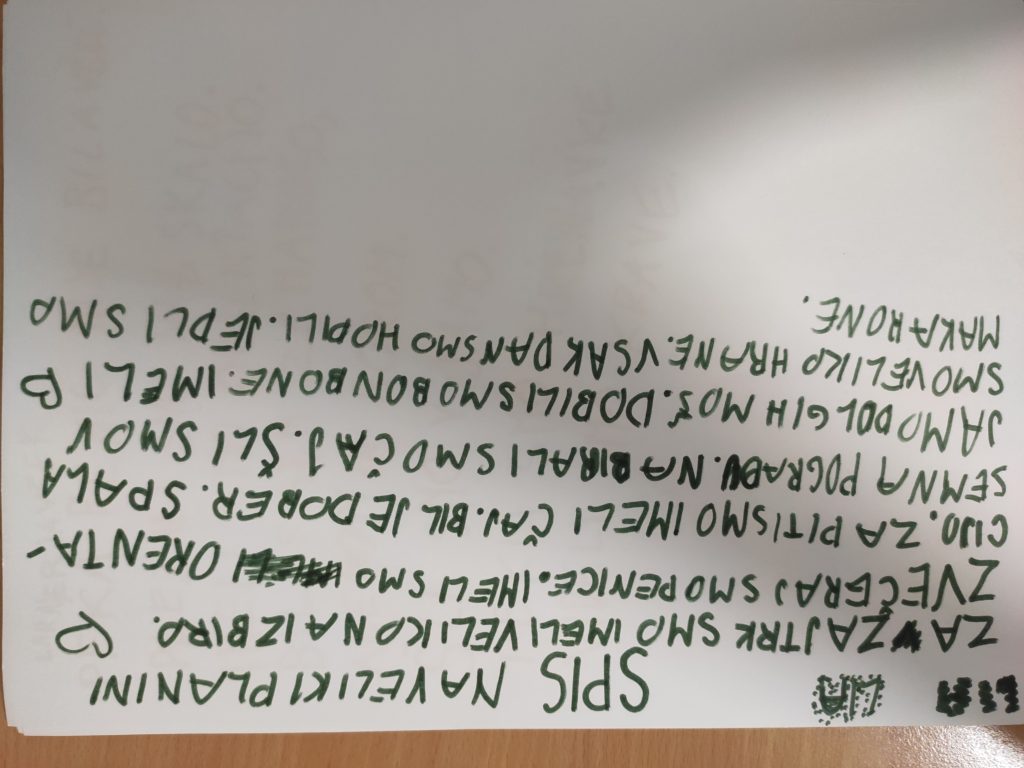 LIA SPIS NA VELIKI PLANINI
ZA ZAJTRK SMO IMELI VELIKO NA IZBIRO.
ZVEČERAJ SMO PENICE. IMELI SMO ORENTA-
CIJO. ZA PITI SMO IMELI ČAJ. BIL JE DOBER. SPALA
SEM NA POGRADU. NABIRALI SMO ČAJ. ŠLI SMO V
JAMO DOLGIH MOŠ. DOBILI SMO BONBONE. IMELI
SMO VELIKO HRANE. VSAK DAN SMO HODILI. JEDLI SMO
MAKARONE.